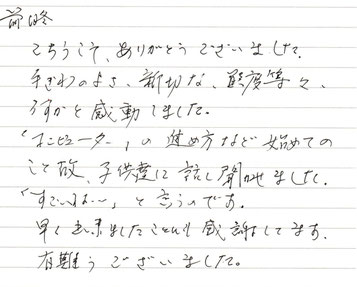 前略
こちらこそ、ありがとうございました。
手ぎわのよさ、新切な、態度等々、
さすがと感動しました。
「コンピューター」の進め方など始めての
こと故、子供達に話し聞かせました。
「すごいネー」と言うのです。
早く出来ましたことにも感謝してます。
有難うございました。